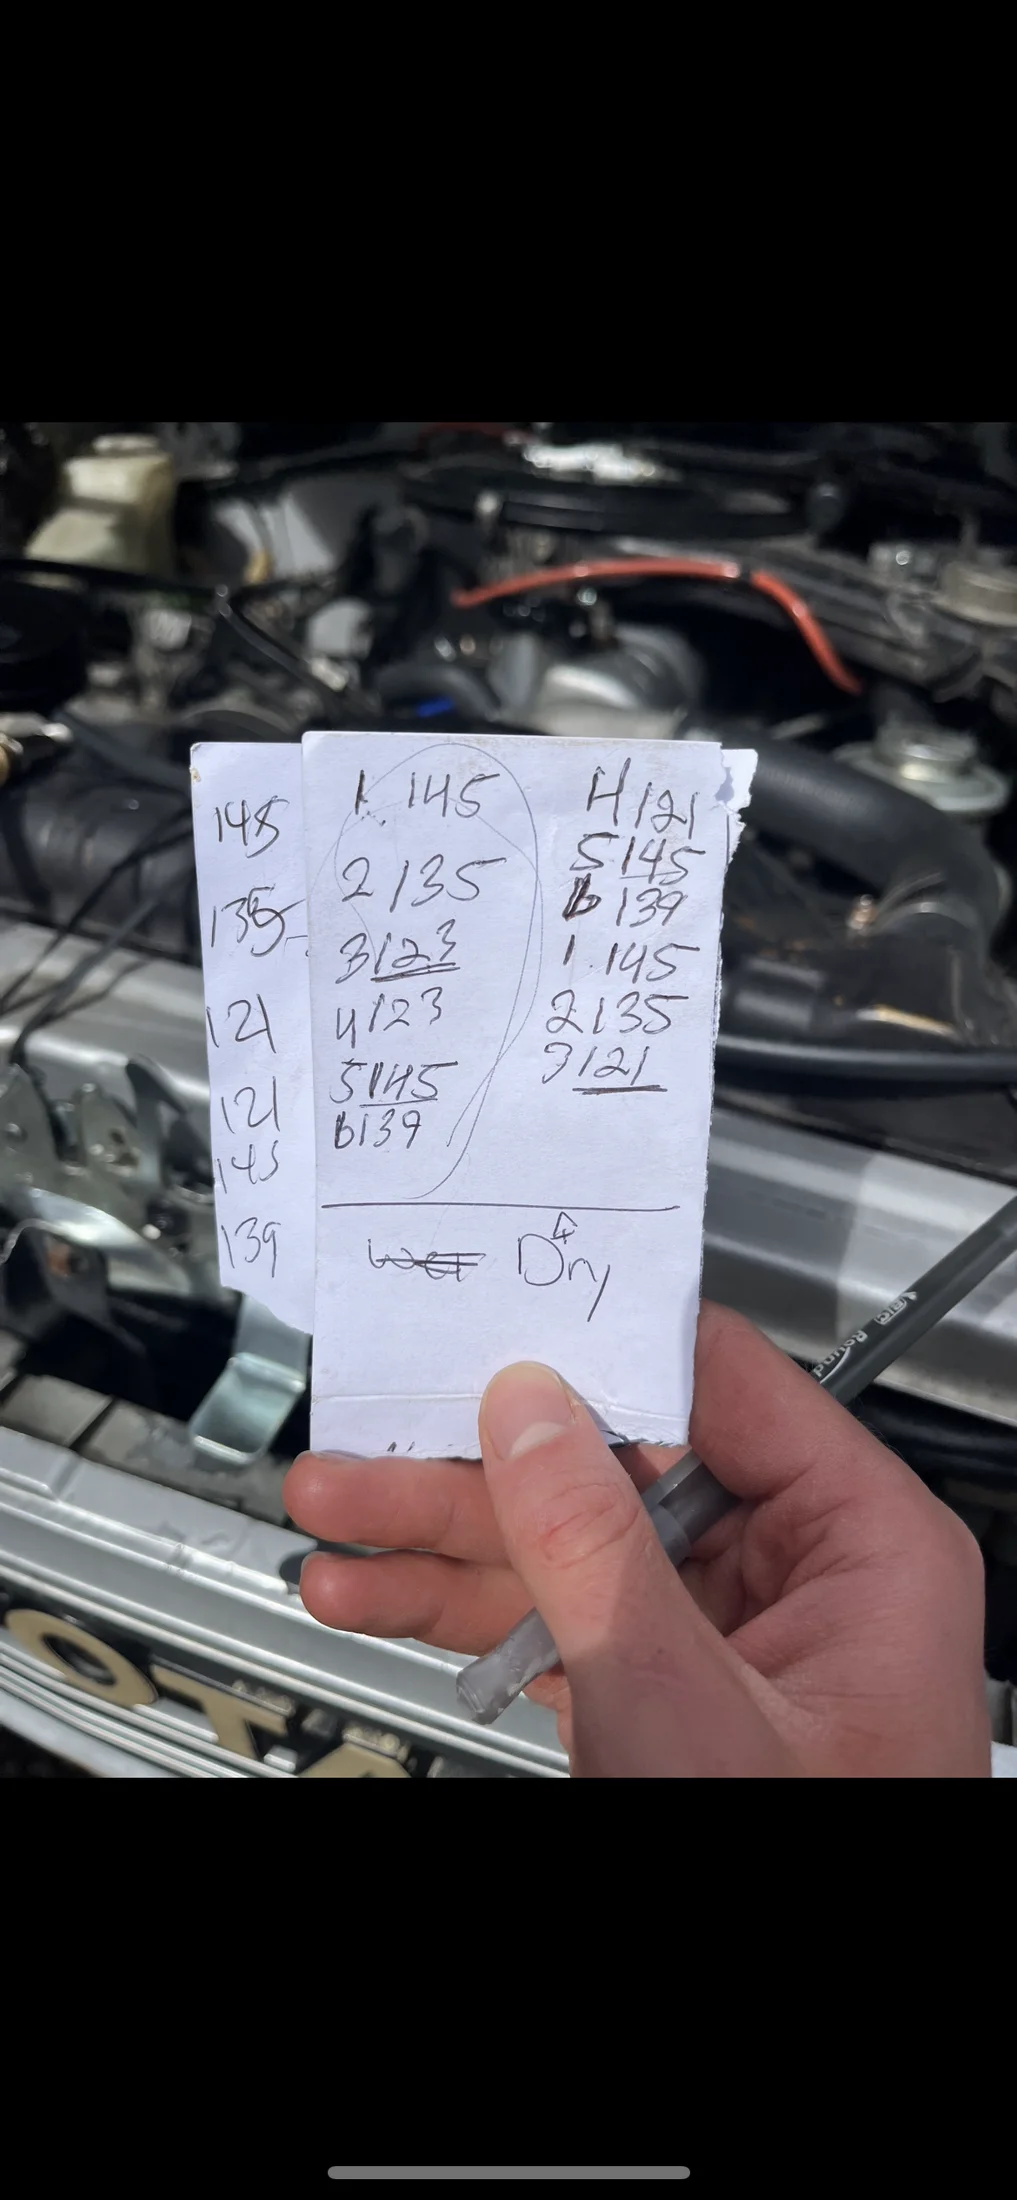 145
135
121
121
145
139
1 145
2 135
3 123
4 123
5 145
6 139
4 121
5 145
6 139
1 145
2 135
3 121
Wet Dry
BIC Round
OTA